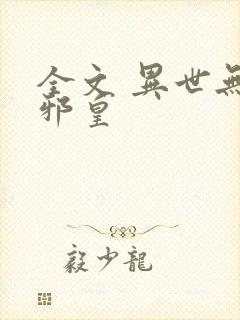 全文 異世無
邪皇
毅少龍